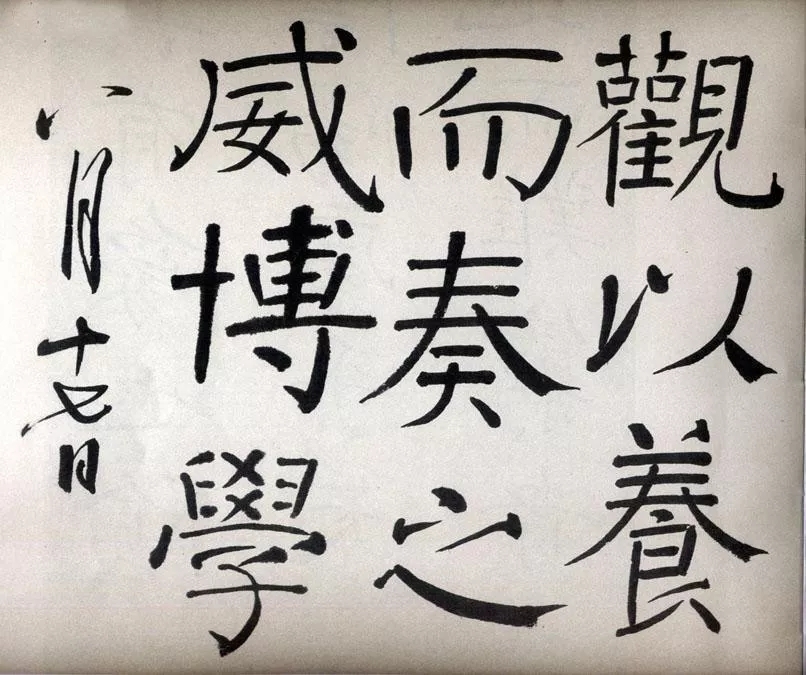 觀以養
而奏之
威博學
八月十七日